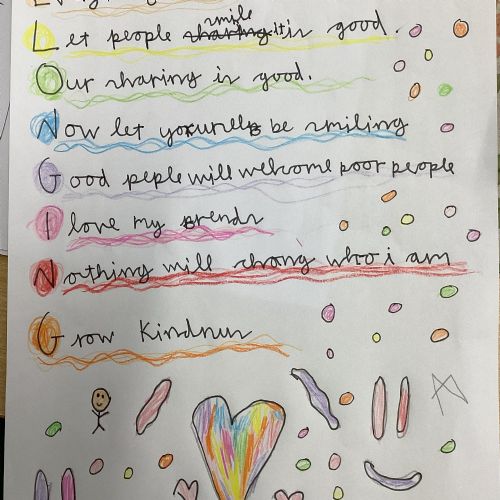 Let people smile it is good.
Our sharing is good.
Now let yourself be smiling
Good peple will welcome poor people
I love my frends
Nothing will chang who i am
Grow Kindness